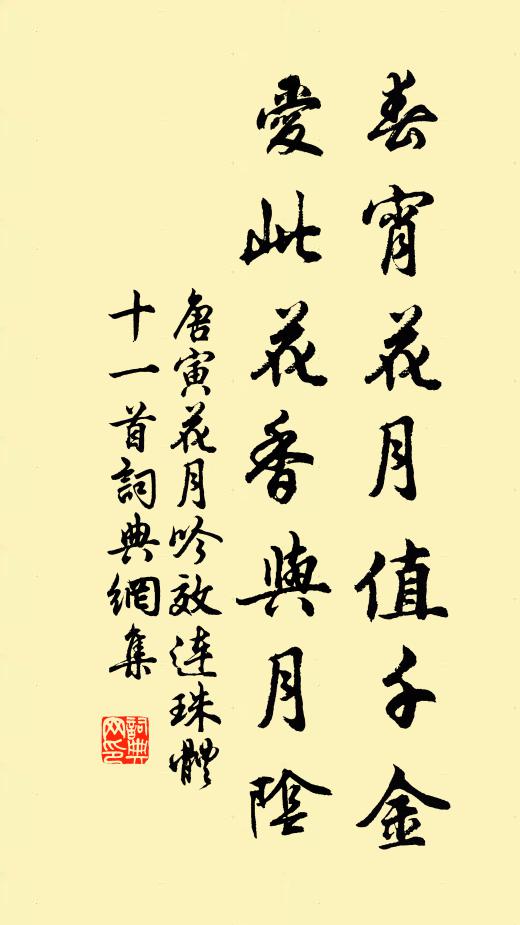 春宵花月值千金
愛此花香與月陰
唐寅花月吟效連珠體
十一首詞典網集
詞典
网印